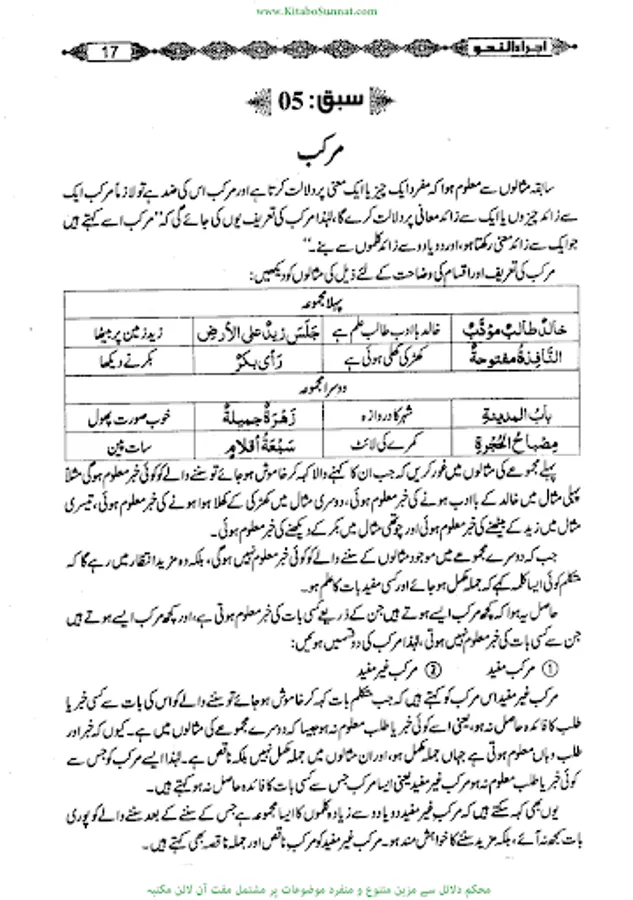 www.KitaboSunnat.com
اجراء النحو
17
سبق: 05
مرکب
سابقہ مثالوں سے معلوم ہوا کہ مفرد ایک چیز یا ایک معنی پر دلالت کرتا ہے اور مرکب اس کی ضد ہے تو لازماً مرکب ایک
سے زائد چیزوں یا ایک سے زائد معانی پر دلالت کرے گا، لہٰذا مرکب کی تعریف یوں کی جائے گی کہ ”مرکب اسے کہتے ہیں
جو ایک سے زائد معنی رکھتا ہو، اور دو یا دو سے زائد کلموں سے بنے۔“
مرکب کی تعریف اور اقسام کی وضاحت کے لئے ذیل کی مثالوں کو دیکھیں:
پہلا مجموعہ
خالدٌ طالبٌ مؤدَّبٌ خالد با ادب طالب علم ہے جَلَسَ زیدٌ علی الأرضِ زید زمین پر بیٹھا
النَّافِذَةُ مفتوحةٌ کھڑکی کھلی ہوئی ہے رَأی بکرٌ بکر نے دیکھا
دوسرا مجموعہ
بابُ المدینةِ شہر کا دروازہ زَهْرَةٌ جمیلةٌ خوب صورت پھول
مِصباحُ الحُجرةِ کمرے کی لائٹ سَبْعَةُ أقلامٍ سات پین
پہلے مجموعے کی مثالوں میں غور کریں کہ جب ان کا کہنے والا کہہ کر خاموش ہو جائے تو سننے والے کو کوئی خبر معلوم ہوگی مثلاً
پہلی مثال میں خالد کے با ادب ہونے کی خبر معلوم ہوئی، دوسری مثال میں کھڑکی کے کھلا ہوا ہونے کی خبر معلوم ہوئی، تیسری
مثال میں زید کے بیٹھنے کی خبر معلوم ہوئی اور چوتھی مثال میں بکر کے دیکھنے کی خبر معلوم ہوئی۔
جب کہ دوسرے مجموعے میں موجود مثالوں کے سننے والے کو کوئی خبر معلوم نہیں ہوگی، بلکہ وہ مزید انتظار میں رہے گا کہ
متکلم کوئی ایسا کلمہ کہے کہ جملہ مکمل ہو جائے اور کسی مفید بات کا علم ہو۔
حاصل یہ ہوا کہ کچھ مرکب ایسے ہوتے ہیں جن کے ذریعے کسی بات کی خبر معلوم ہوتی ہے، اور کچھ مرکب ایسے ہوتے ہیں
جن سے کسی بات کی خبر معلوم نہیں ہوتی، لہٰذا مرکب کی دو قسمیں ہوئیں:
① مرکب مفید ② مرکب غیر مفید
مرکب غیر مفید اس مرکب کو کہتے ہیں کہ جب متکلم بات کہہ کر خاموش ہو جائے تو سننے والے کو اس کی بات سے کسی خبر یا
طلب کا فائدہ حاصل نہ ہو، یعنی اسے کوئی خبر یا طلب معلوم نہ ہو جیسا کہ دوسرے مجموعے کی مثالوں میں ہے۔ کیوں کہ خبر اور
طلب وہاں معلوم ہوتی ہے جہاں جملہ مکمل ہو، اور ان مثالوں میں جملہ مکمل نہیں بلکہ ناقص ہے۔ لہٰذا ایسے مرکب کو جس سے
کوئی خبر یا طلب معلوم نہ ہو مرکب غیر مفید یعنی ایسا مرکب جس سے کسی بات کا فائدہ حاصل نہ ہو کہتے ہیں۔
یوں بھی کہہ سکتے ہیں کہ مرکب غیر مفید دو یا دو سے زیادہ کلموں کا ایسا مجموعہ ہے جس کے سننے کے بعد سننے والے کو پوری
بات سمجھ نہ آئے، بلکہ مزید سننے کا خواہش مند ہو۔ مرکب غیر مفید کو مرکب ناقص اور جملہ ناقصہ بھی کہتے ہیں۔
محکم دلائل سے مزین متنوع و منفرد موضوعات پر مشتمل مفت آن لائن مکتبہ